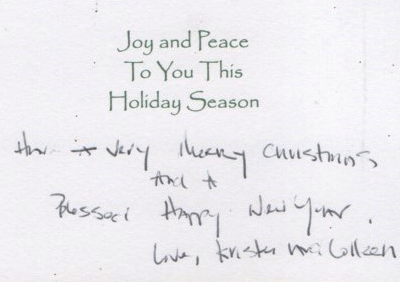 Joy and Peace
To You This
Holiday Season
A very Merry Christmas
And A
Blessed Happy New Year,
Love,